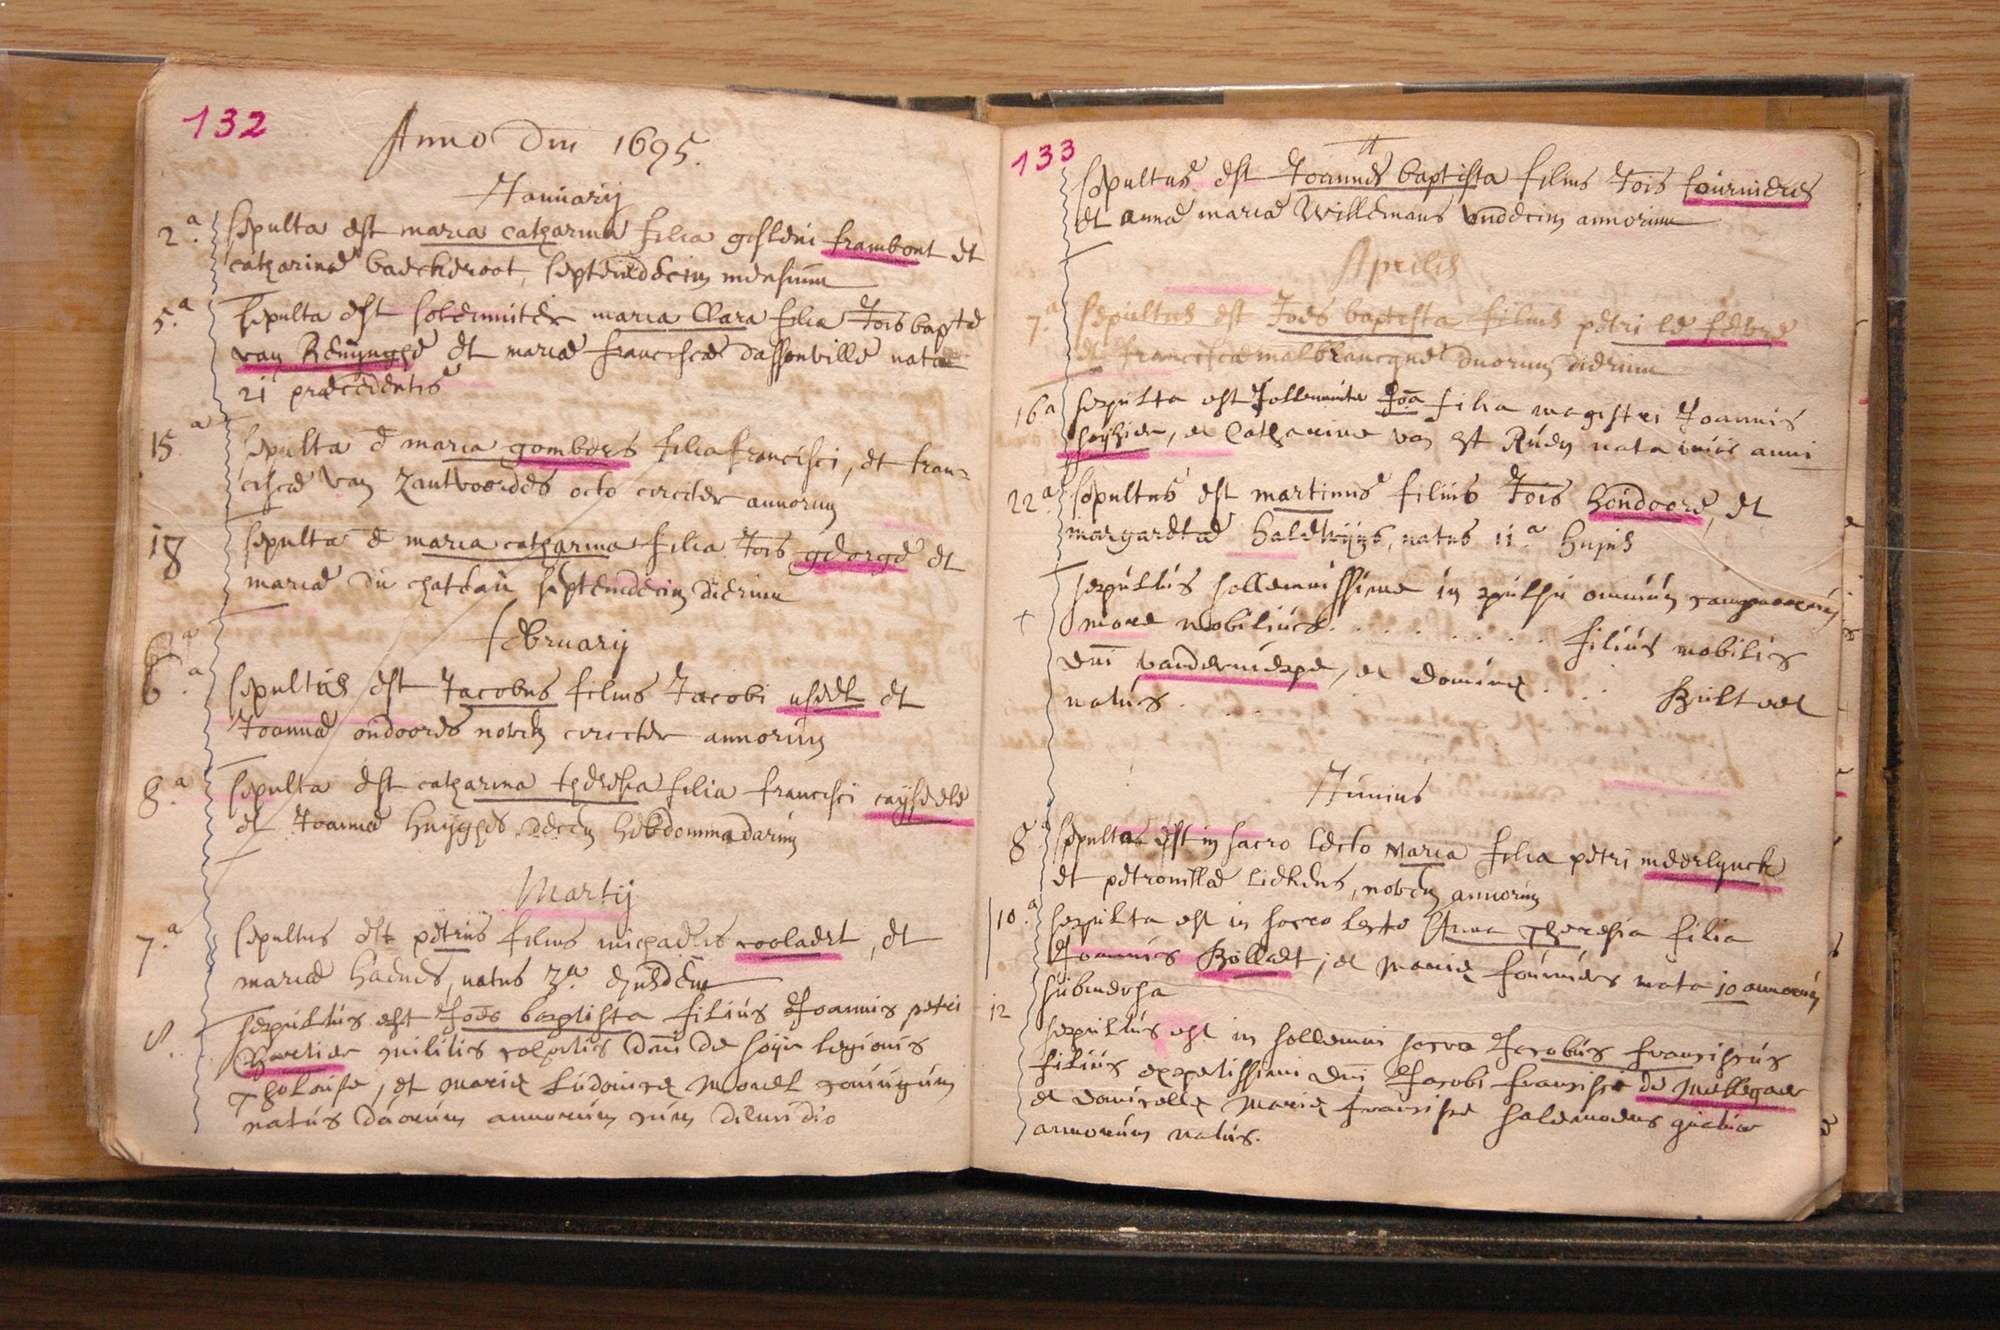 132
Anno Dni 1695.
Januarij
2.a Sepulta est maria catharina filia gisleni frambont et
catharinae baeckeroot, septemdecim mensium
5.a Sepulta est solemniter maria Clara filia Jois baptae
van Renynghe et mariae franciscae dassonville nata
21 praecedentis
15.a Sepulta e maria gombers filia francisci, et fran-
ciscae van Zantvoordes octo circiter annorum
18 sepulta e maria catharina filia Jois george et
mariae du chateau septemdecim dierum
february
6.a sepultus est Jacobus filius Jacobi usell et
Joannae ondoores novem circiter annorum
8.a Sepulta est catharina theresia filia francisci caÿseele
et Joannae huÿghes decem hebdommadarum
Martij
7.a Sepultus est petrus filius michaelis roolaert, et
mariae haenes, natus 3.a ejusdem
8. sepultus est Joes baptista filius Joannis petri
militis Dni de legionis
et Mariae Ludovicae Morel coniugum
natus duorum annorum cum dimidio
133
sepultus est Joannes baptista filius Jois fournieres
et annae mariae Willemans undecim annorum
Aprilis
7.a Sepultus est Joes baptista filius petri le febvre
et franciscae malbrancque duorum dierum
16a sepulta est sollemniter Joa filia magistri Joannis
et Catharinae van nata huius anni
22.a sepultus est martinus filius Jois hondoore, et
margaretae halewÿns, natus 11.a hujus
sepultus sollemnissime in pulsu omnium campanarum
+ more nobilium . . . . . . . . . filius mobilis
dni vandermeepe, et dominae . . . . Bulteel
natus . . . .
Junius
8.a Sepulta est in sacro lecto Maria filia petri meerlynck
et petronillae liekens, novem annorum
10.a sepulta est in sacro lecto Anna Theresia filia
Joannis Bollaert, et Mariae fournier nata 10 annorum
submersa
12 sepultus est in sollemni sacro Jacobus franciscus
filius expertissimi dni Jacobi francisci de Mellegaer
et domicellae Mariae franciscae
annorum natus.